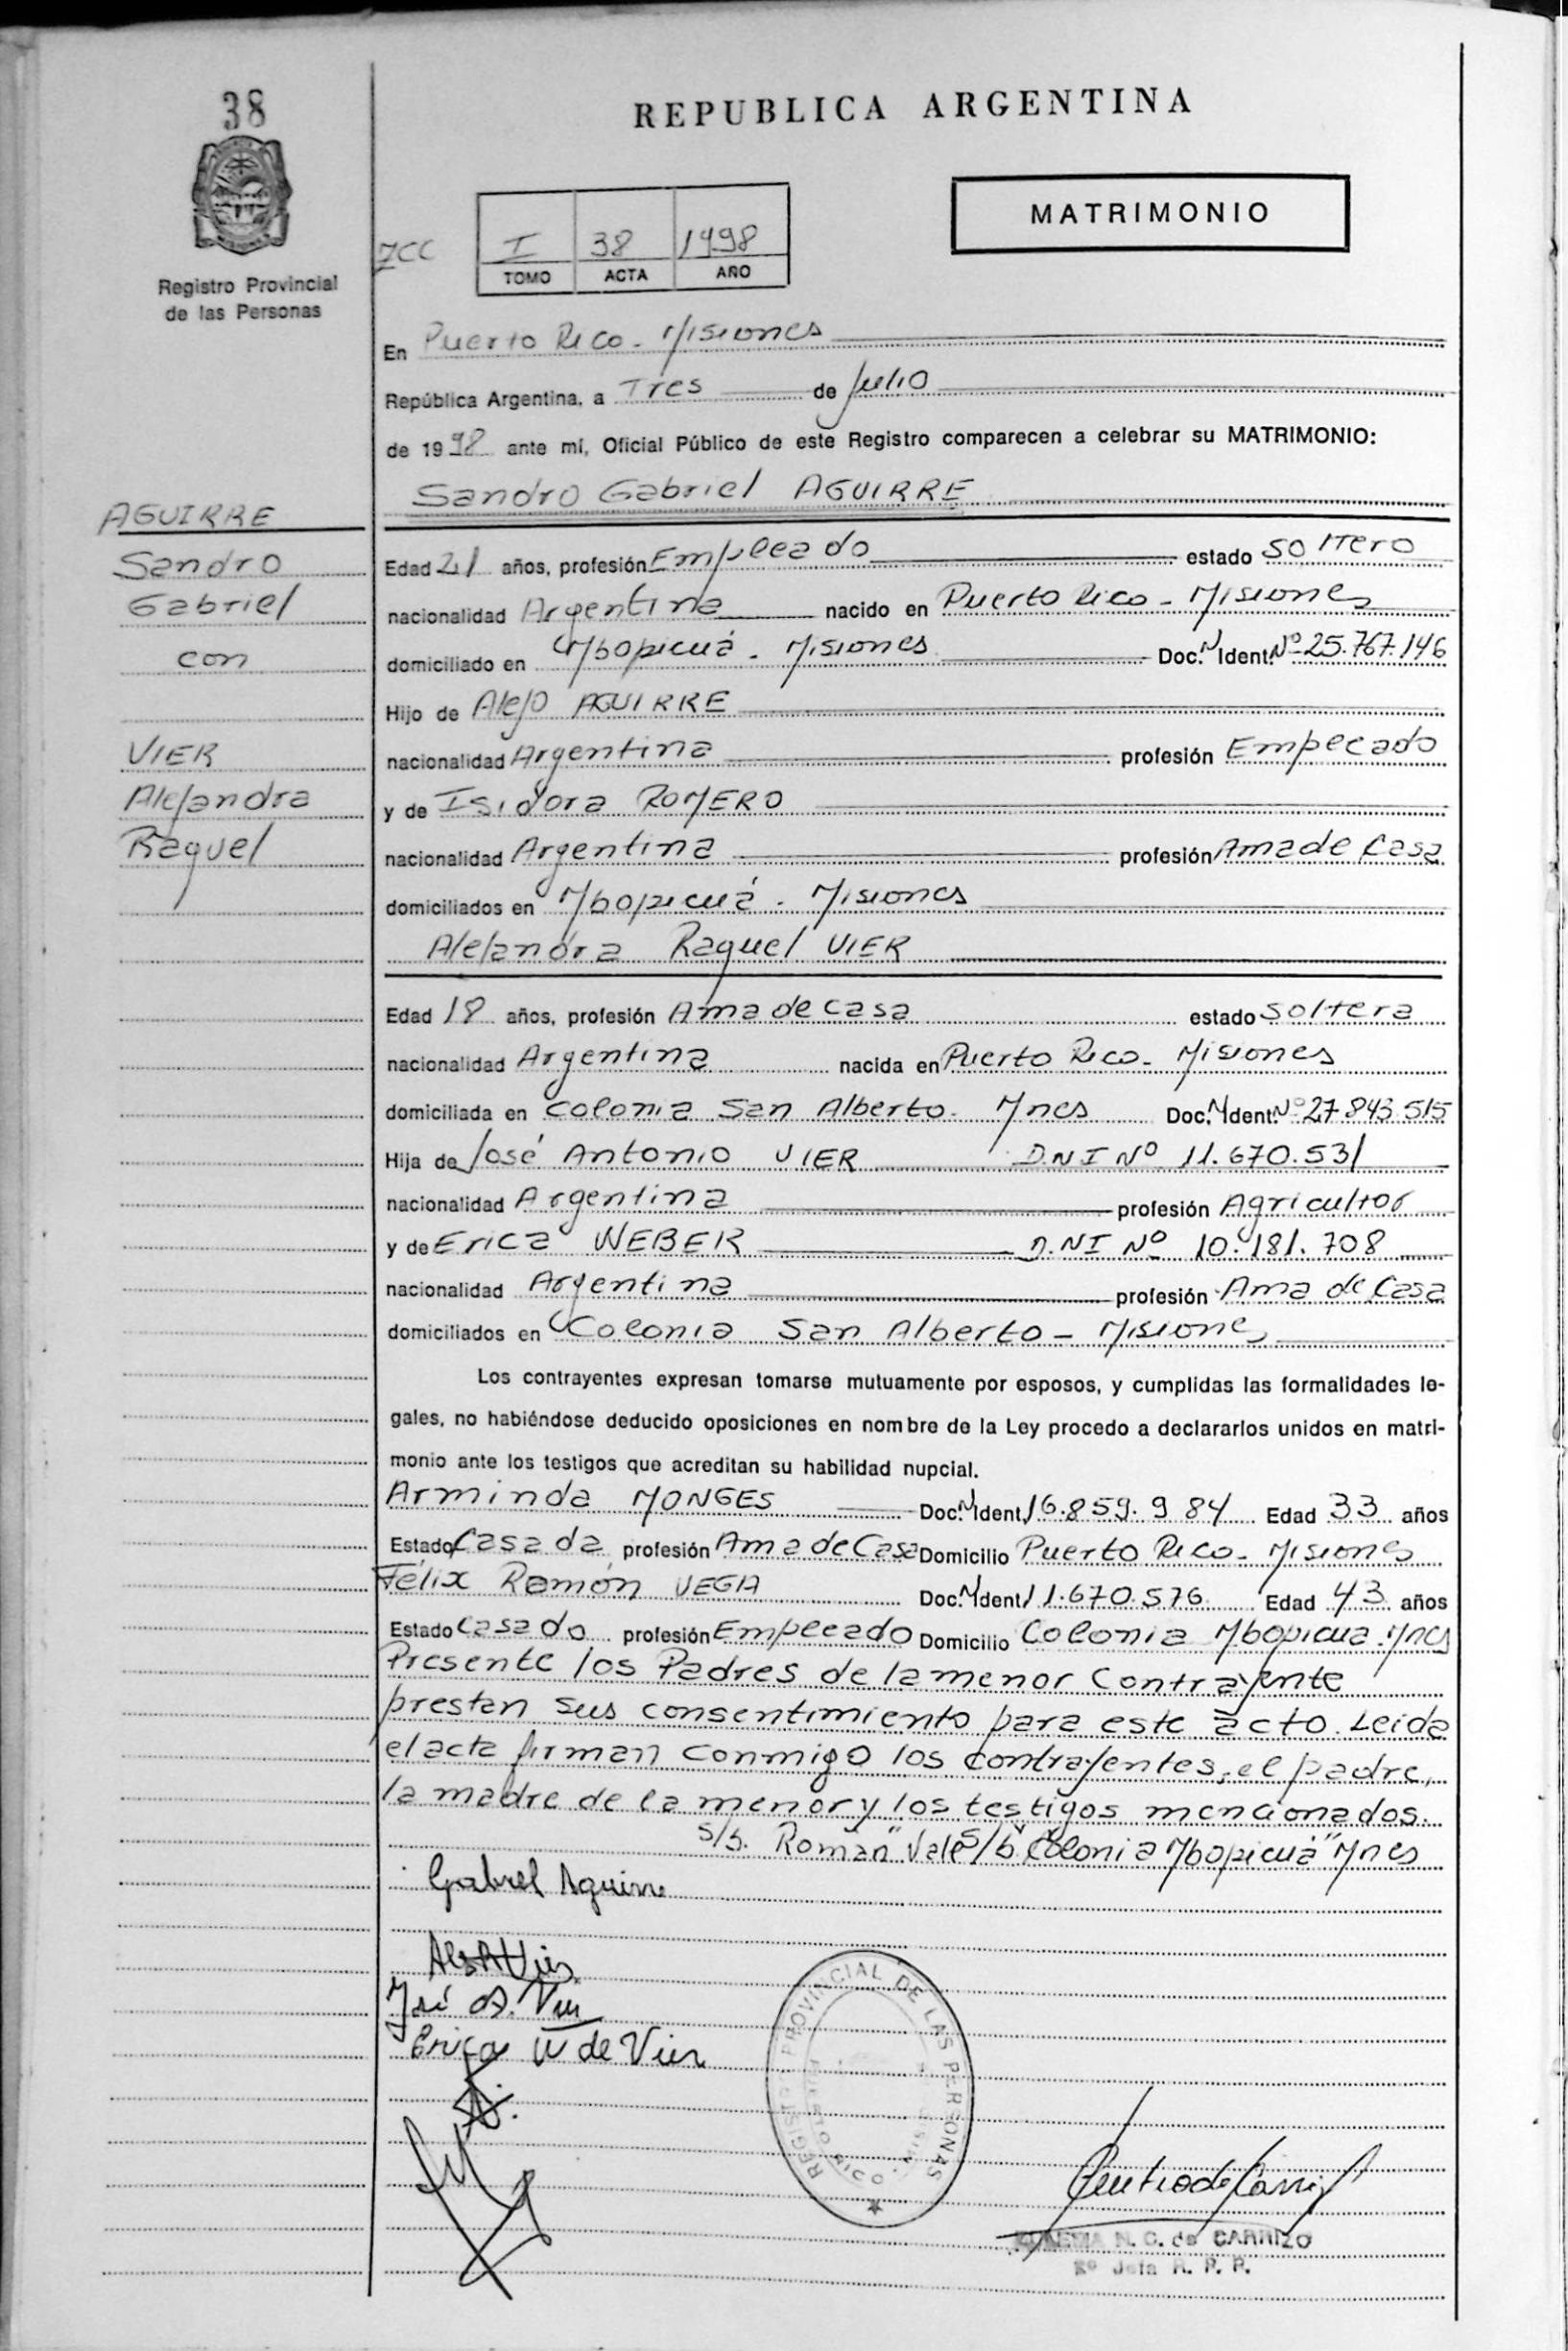 38
REPUBLICA ARGENTINA
MATRIMONIO
I 38 1998
TOMO ACTA AÑO
Registro Provincial
de las Personas
En Puerto Rico - Misiones
República Argentina, a Tres de Julio
de 1998 ante mí, Oficial Público de este Registro comparecen a celebrar su MATRIMONIO:
Sandro Gabriel AGUIRRE
AGUIRRE
Sandro
Gabriel
con
VIER
Alejandra
Raquel
Edad 21 años, profesión Empleado estado soltero
nacionalidad Argentina nacido en Puerto Rico - Misiones
domiciliado en Mbopicuá - Misiones Doc. N. Ident. Nº 25.767.146
Hijo de Alejo AGUIRRE
nacionalidad Argentina profesión Empleado
y de Isidora ROMERO
nacionalidad Argentina profesión Ama de Casa
domiciliados en Mbopicuá - Misiones
Alejandra Raquel VIER
Edad 18 años, profesión Ama de casa estado soltera
nacionalidad Argentina nacida en Puerto Rico - Misiones
domiciliada en Colonia San Alberto - Mnes Doc. N. Ident. Nº 27.843.515
Hija de José Antonio VIER D.N.I Nº 11.670.531
nacionalidad Argentina profesión Agricultor
y de Erica WEBER D.NI Nº 10.181.708
nacionalidad Argentina profesión Ama de Casa
domiciliados en Colonia San Alberto - Misiones
Los contrayentes expresan tomarse mutuamente por esposos, y cumplidas las formalidades le-
gales, no habiéndose deducido oposiciones en nombre de la Ley procedo a declararlos unidos en matri-
monio ante los testigos que acreditan su habilidad nupcial.
Arminda MONGES Doc. N. Ident. 16.859.984 Edad 33 años
Estado Casada profesión Ama de Casa Domicilio Puerto Rico - Misiones
Félix Ramón VEGA Doc. N. Ident. 11.670.576 Edad 43 años
Estado casado profesión Empleado Domicilio Colonia Mbopicua Mnes
Presente los Padres de la menor Contrayente
prestan sus consentimiento para este acto. Leida
el acta firman conmigo los contrayentes, el padre,
la madre de la menor y los testigos mencionados.
s/b. Roman" Vale s/b "Colonia Mbopicuá" Mnes
Gabriel Aguirre
José A. Vier
Erica W de Vier
REGISTRO PROVINCIAL DE LAS PERSONAS
N. C. de CARRIZO
Jefa R. P. P.